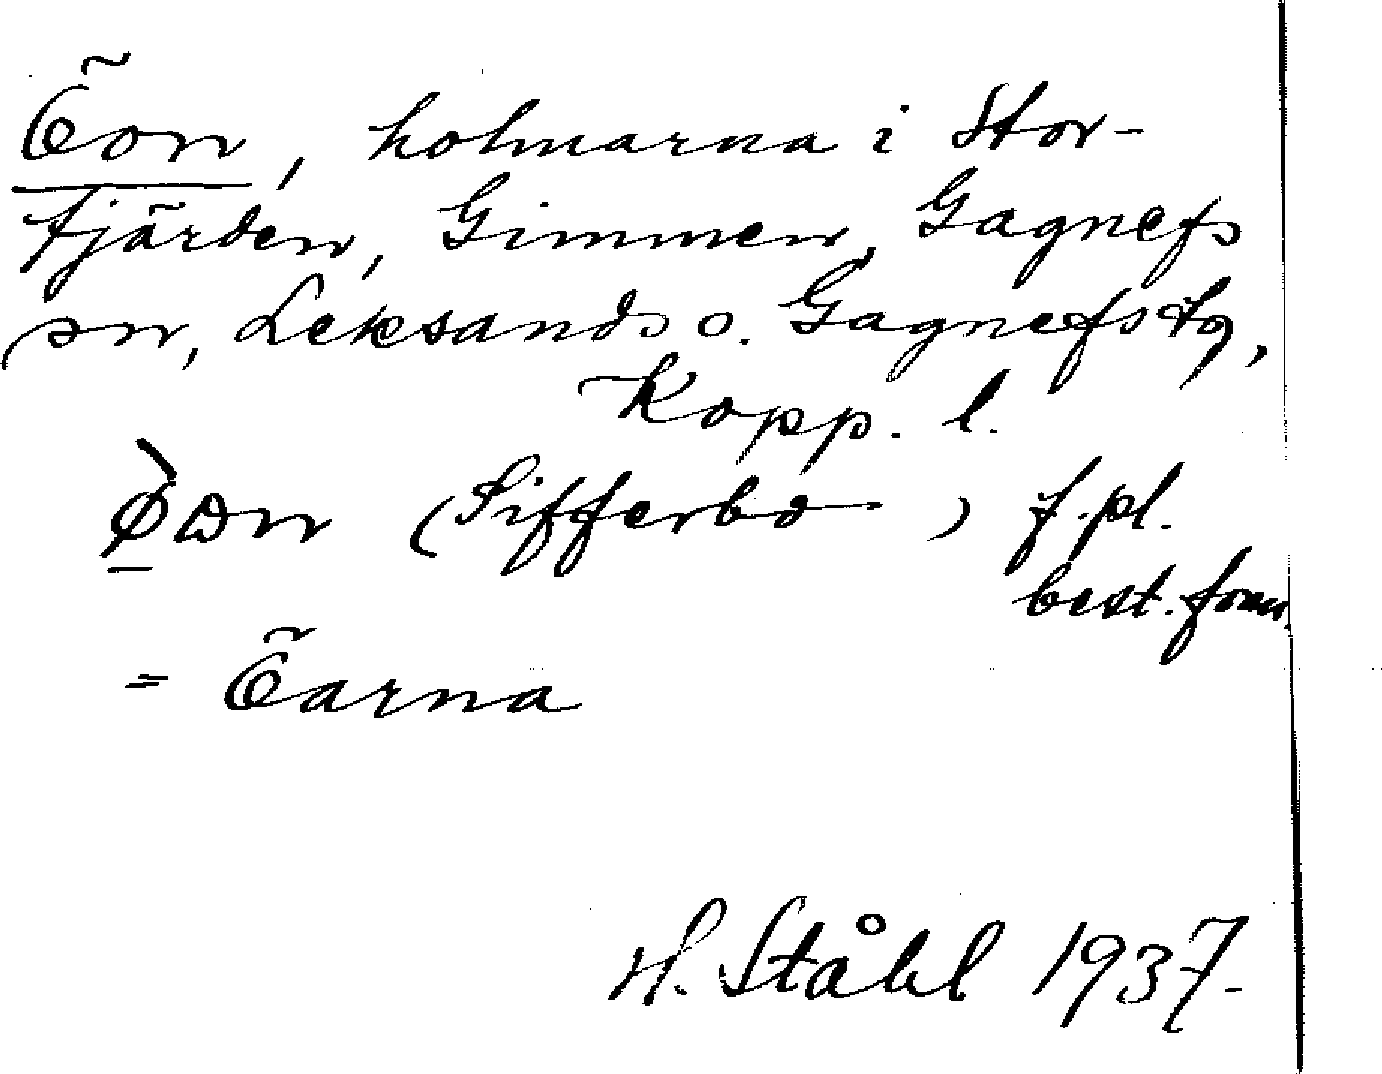 Öon, holmarna i Stor-
fjärden, Gimmen, Gagnefs
sn, Leksands o. Gagnefs tg,
Kopp. l.
(Sifferbo) f. pl.
best. form.
= Öarna
H. Ståhl 1937.